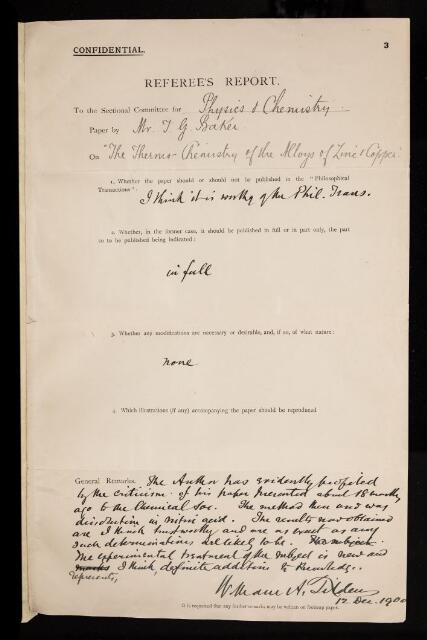 CONFIDENTIAL.
3
REFEREE'S REPORT.
To the Sectional Committee for Physics & Chemistry
Paper by Mr. T. G. Baker
On "The Thermo-Chemistry of the Alloys of Zinc & Copper"
1. Whether the paper should or should not be published in the "Philosophical
Transactions":
I think it is worthy of the Phil. Trans.
2. Whether, in the former case, it should be published in full or in part only, the part
to be published being indicated:
in full
3. Whether any modifications are necessary or desirable, and, if so, of what nature:
none
4. Which illustrations (if any) accompanying the paper should be reproduced
General Remarks. The Author has evidently profited
by the criticism of his paper presented about 18 months
ago to the Chemical Soc. The method then used was
dissolution in nitric acid. The results now obtained
are I think trustworthy and are as exact as any
such determinations are likely to be. The subject
The experimental treatment of the subject is new and
represents, I think, definite additions to knowledge.
William A. Tilden
12 Dec. 1900
It is requested that any further remarks may be written on foolscap paper.